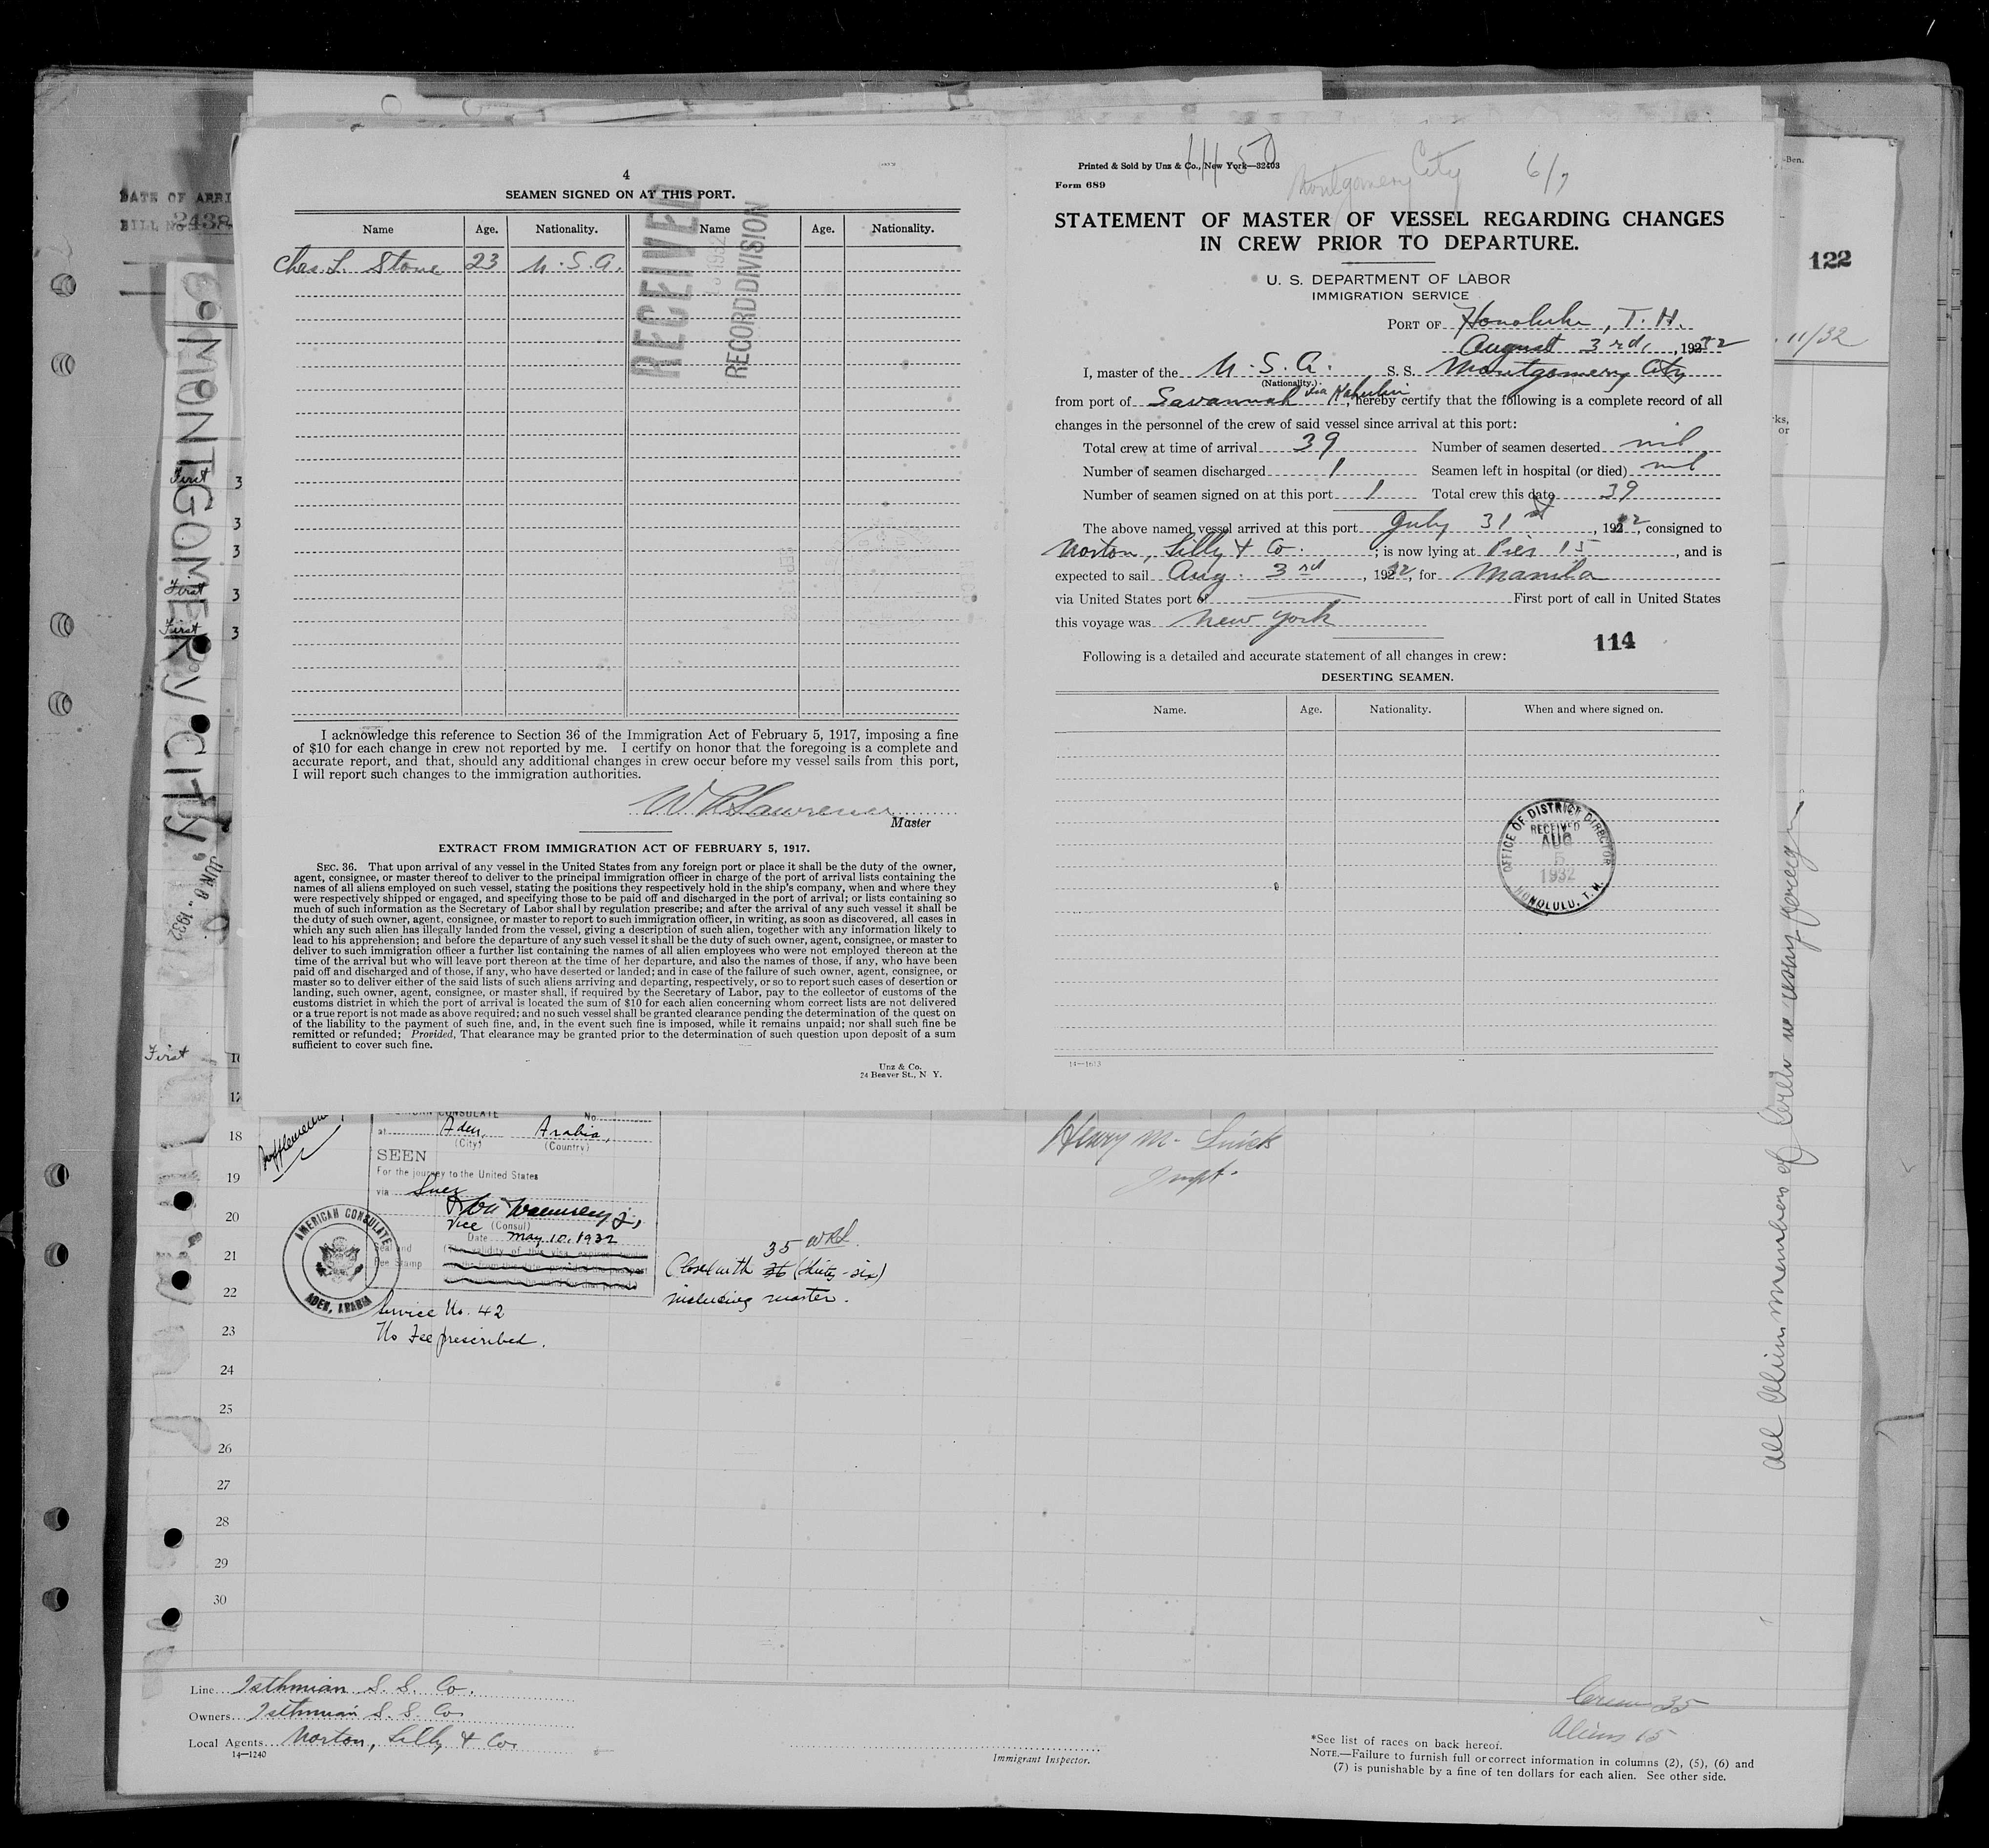 4
SEAMEN SIGNED ON AT THIS PORT.
Name Age. Nationality. Name Age. Nationality.
Chas. L. Stone 23 U.S.A.
RECEIVED
1932
RECORD DIVISION
I acknowledge this reference to Section 36 of the Immigration Act of February 5, 1917, imposing a fine
of $10 for each change in crew not reported by me. I certify on honor that the foregoing is a complete and
accurate report, and that, should any additional changes in crew occur before my vessel sails from this port,
I will report such changes to the immigration authorities.
Lawrence
Master
EXTRACT FROM IMMIGRATION ACT OF FEBRUARY 5, 1917.
SEC. 36. That upon arrival of any vessel in the United States from any foreign port or place it shall be the duty of the owner,
agent, consignee, or master thereof to deliver to the principal immigration officer in charge of the port of arrival lists containing the
names of all aliens employed on such vessel, stating the positions they respectively hold in the ship's company, when and where they
were respectively shipped or engaged, and specifying those to be paid off and discharged in the port of arrival; or lists containing so
much of such information as the Secretary of Labor shall by regulation prescribe; and after the arrival of any such vessel it shall be
the duty of such owner, agent, consignee, or master to report to such immigration officer, in writing, as soon as discovered, all cases in
which any such alien has illegally landed from the vessel, giving a description of such alien, together with any information likely to
lead to his apprehension; and before the departure of any such vessel it shall be the duty of such owner, agent, consignee, or master to
deliver to such immigration officer a further list containing the names of all alien employees who were not employed thereon at the
time of the arrival but who will leave port thereon at the time of her departure, and also the names of those, if any, who have been
paid off and discharged and of those, if any, who have deserted or landed; and in case of the failure of such owner, agent, consignee, or
master so to deliver either of the said lists of such aliens arriving and departing, respectively, or so to report such cases of desertion or
landing, such owner, agent, consignee, or master shall, if required by the Secretary of Labor, pay to the collector of customs of the
customs district in which the port of arrival is located the sum of $10 for each alien concerning whom correct lists are not delivered
or a true report is not made as above required; and no such vessel shall be granted clearance pending the determination of the quest on
of the liability to the payment of such fine, and, in the event such fine is imposed, while it remains unpaid; nor shall such fine be
remitted or refunded; Provided, That clearance may be granted prior to the determination of such question upon deposit of a sum
sufficient to cover such fine.
Unz & Co.
24 Beaver St., N Y.
Printed & Sold by Unz & Co., New York—32403
Form 689
Montgomery City 6/7
STATEMENT OF MASTER OF VESSEL REGARDING CHANGES
IN CREW PRIOR TO DEPARTURE.
U. S. DEPARTMENT OF LABOR
IMMIGRATION SERVICE
PORT OF Honolulu, T. H.
August 3rd, 1932
I, master of the U. S. A. S. S. Montgomery City
(Nationality.)
from port of Savannah via Kahului, hereby certify that the following is a complete record of all
changes in the personnel of the crew of said vessel since arrival at this port:
Total crew at time of arrival 39 Number of seamen deserted nil
Number of seamen discharged 1 Seamen left in hospital (or died) nil
Number of seamen signed on at this port 1 Total crew this date 39
The above named vessel arrived at this port July 31st, 1932, consigned to
Norton, Lilly & Co.; is now lying at Pier 15, and is
expected to sail Aug. 3rd, 1932, for Manila
via United States port of First port of call in United States
this voyage was New York
114
Following is a detailed and accurate statement of all changes in crew:
DESERTING SEAMEN.
Name. Age. Nationality. When and where signed on.
OFFICE OF DISTRICT DIRECTOR
RECEIVED
AUG
5
1932
HONOLULU, T. H.
14—1613
DATE OF ARRI
BILL No 2438
MONTGOMERY CITY,
JUN 8 - 1932
First 3
3
3
First 3
First 3
First
-Ben.
122
11/32
ks,
or
18
19
20
21
22
23
24
25
26
27
28
29
30
CONSULATE No.
at Aden, Arabia,
(City) (Country)
SEEN
For the journey to the United States
via Suez
Vice (Consul)
Date May 10, 1932
AMERICAN CONSULATE
ADEN, ARABIA
Service No. 42
No Fee prescribed.
35
Closed with 36 (thirty-six)
including master.
Henry M.
Inspt.
All Alien members of Crew
Line Isthmian S. S. Co.
Owners Isthmian S. S. Co.
Local Agents Norton, Lilly & Co.
14—1240
Immigrant Inspector.
Crew 35
Aliens 15
*See list of races on back hereof.
NOTE.—Failure to furnish full or correct information in columns (2), (5), (6) and
(7) is punishable by a fine of ten dollars for each alien. See other side.